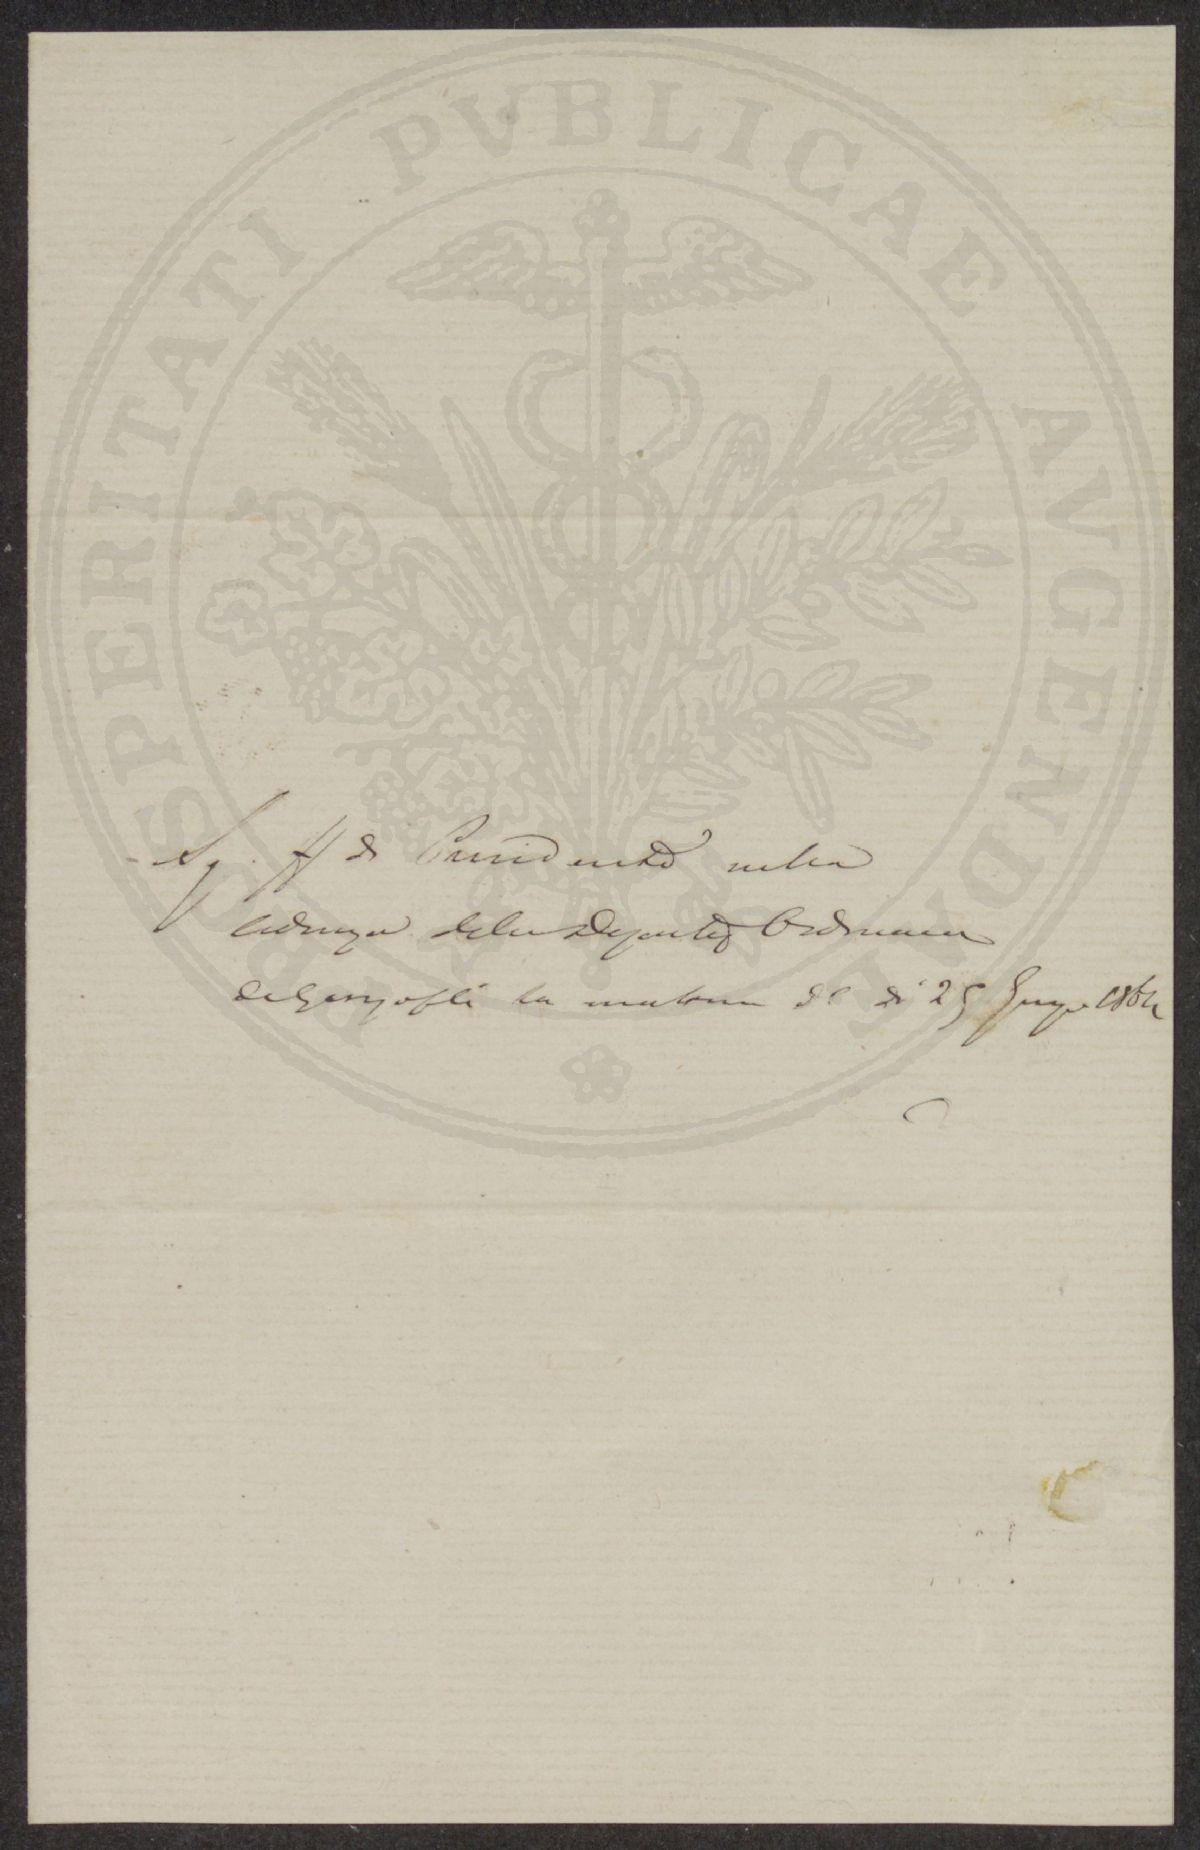 PROSPERITATI PVBLICAE AVGENDAE
di Presidente nella
Adunza della Deputaz Ordinaria
de Georgofili la mattina del di 25 Giugo 1864